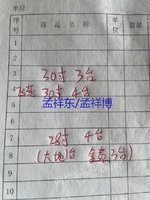 单位:
序号 商品名称 单位 数量
1
2
3 30寸 3台
4 30寸 4台
5
孟祥东/孟祥博
6
7 28寸 4台
8 台 3台)
9
10